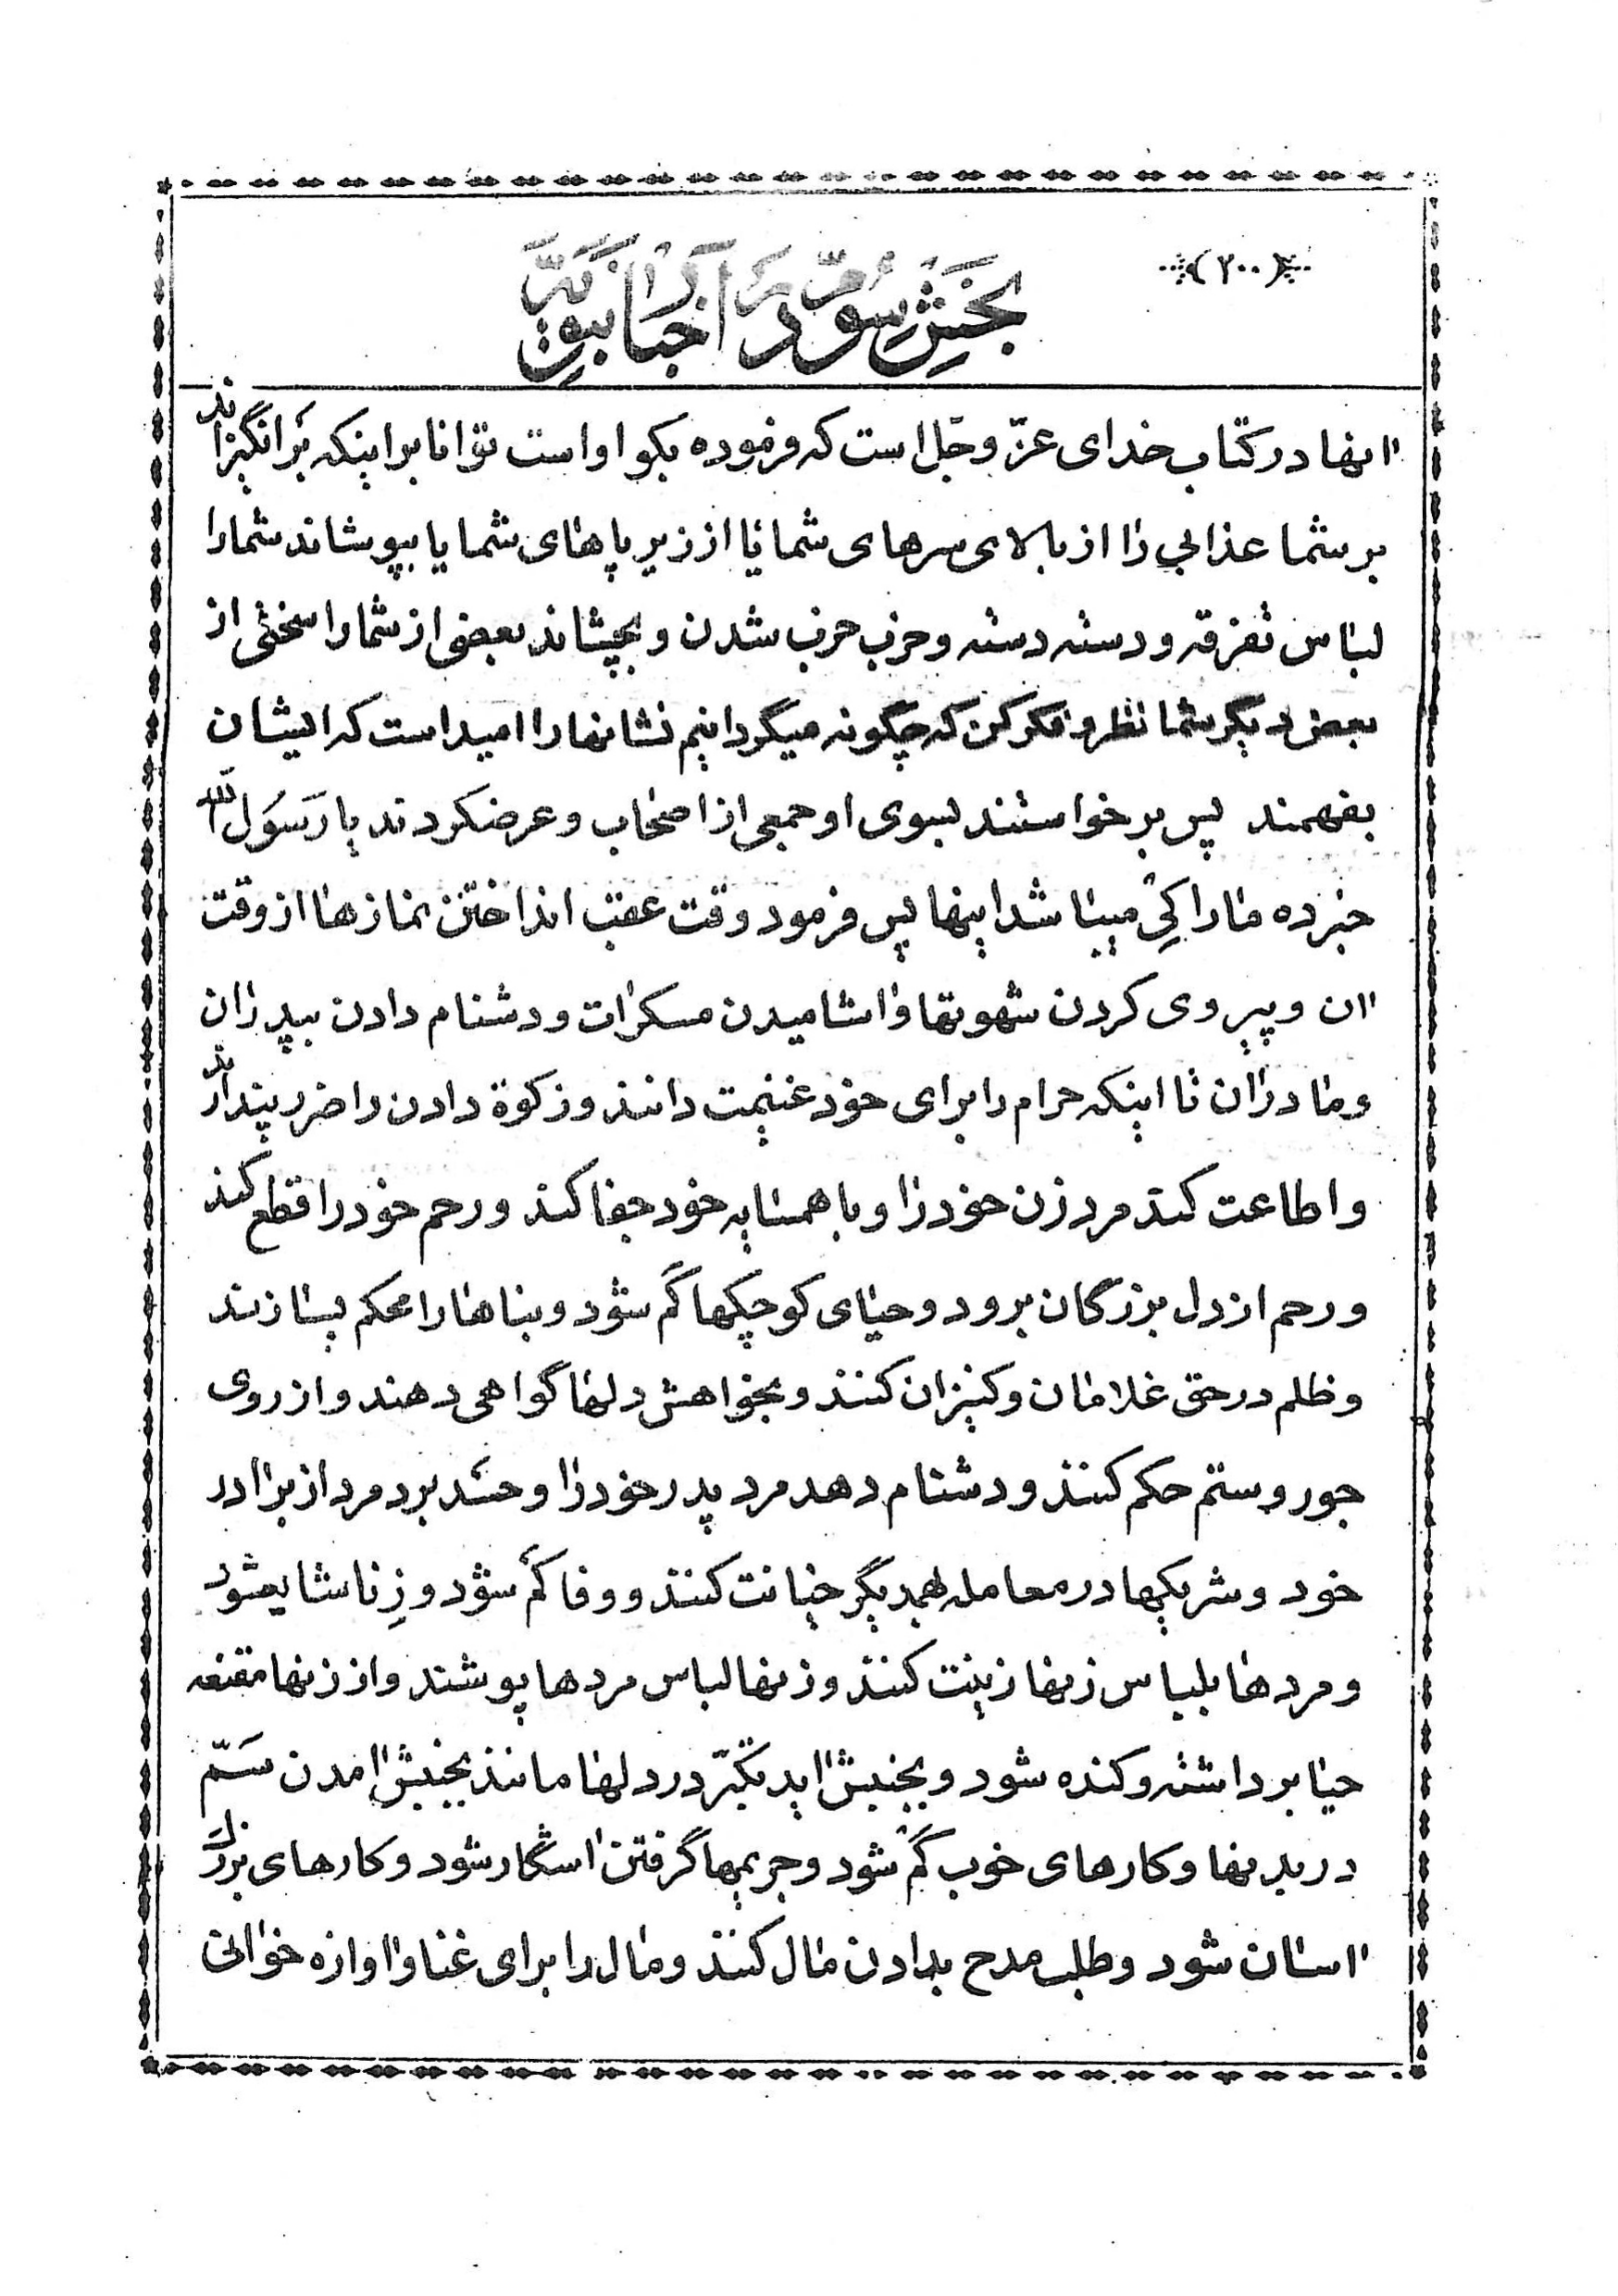 (۲۰۰)
بخش سوم در اخبار نبویه
آنها در کتاب خدای عزّ و جل است که فرموده بگو او است توانا بر اینکه بر انگیزاند
بر شما عذابی را از بالای سرهای شما یا از زیر پاهای شما یا بپوشاند شما را
لباس تفرقه و دسته دسته و حزب حزب شدن و بچشاند بعضی از شما را سختی از
بعض دیگر شما نظر و فکر کن که چگونه میگردانیم نشانها را امید است که ایشان
بفهمند پس برخواستند بسوی او جمعی از اصحاب و عرضکردند یا رَسُول اللّه
خبر ده ما را کِی میباشد اینها پس فرمود وقت عقب انداختن نمازها از وقت
آن و پیروی کردن شهوتها و آشامیدن مسکرات و دشنام دادن بپدران
و مادران تا اینکه حرام را برای خود غنیمت دانند و زکوة دادن را ضرر پندارند
و اطاعت کند مرد زن خود را و با همسایه خود جفا کند و رحم خود را قطع کند
و رحم از دل بزرگان برود و حیای کوچکها کم شود و بناها را محکم بسازند
و ظلم در حق غلامان و کنیزان کنند و بخواهش دلها گواهی دهند و از روی
جور و ستم حکم کنند و دشنام دهد مرد پدر خود را و حسد برد مرد از برادر
خود و شریکها در معامله بهمدیگر خیانت کنند و وفا کم شود و زِنا شایع شود
و مردها بلباس زنها زینت کنند و زنها لباس مردها پوشند و از زنها مقنعه
حیا برداشته و کنده شود و بجنبش آید تکبّر در دلها مانند بجنبش آمدن سَمّ
در بدنها و کارهای خوب کم شود و جریمها گرفتن آشکار شود و کارهای بزرگ
آسان شود و طلب مدح بدادن مال کنند و مال را برای غنا و آوازه خوانی